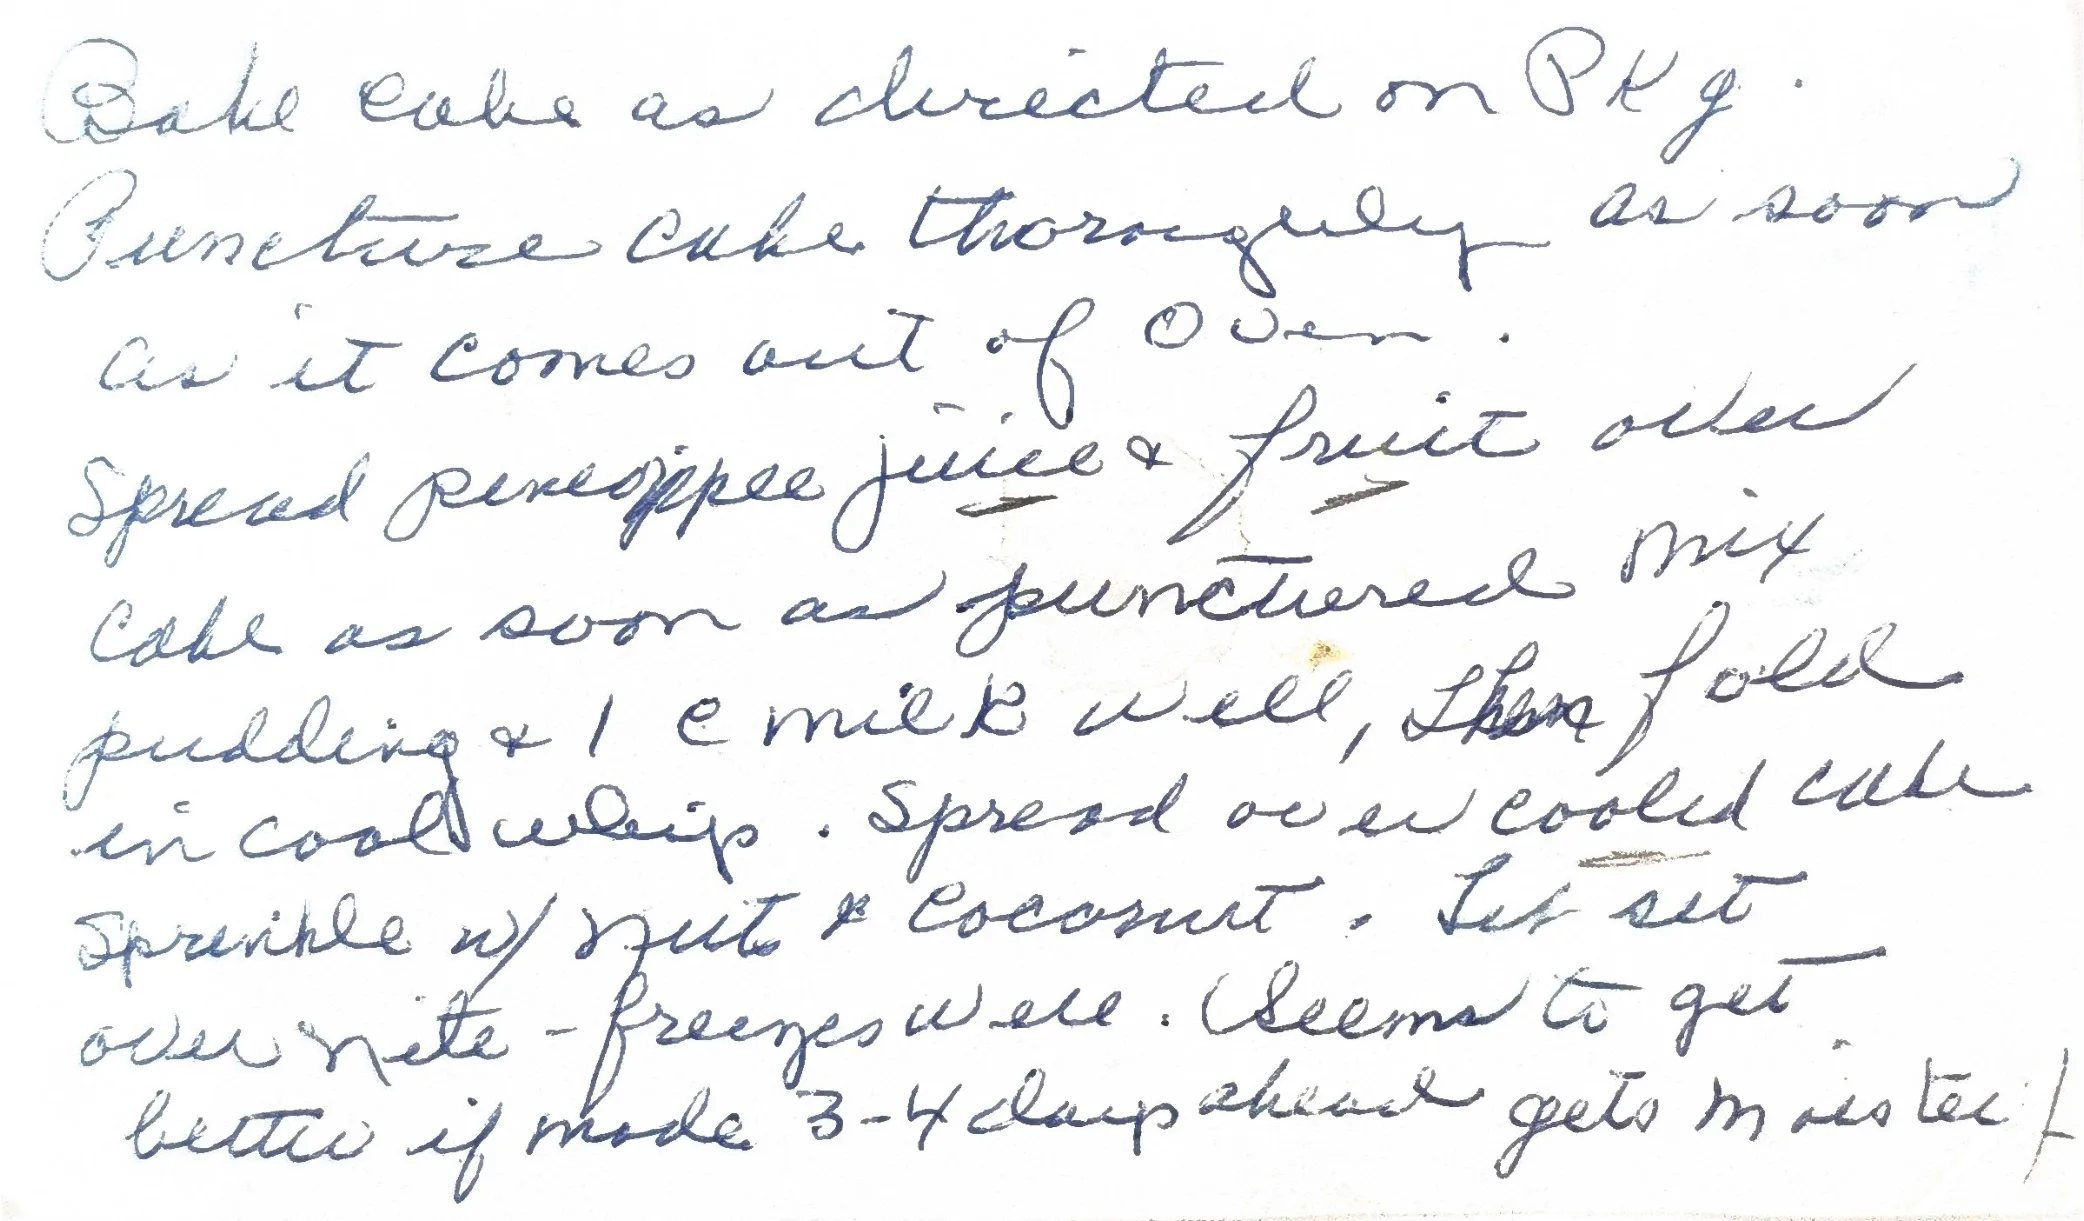 Bake cake as directed on PKg.
Puncture cake thoroughly as soon
as it comes out of oven.
Spread pineapple juice & fruit over
cake as soon as punctured mix
pudding & 1 c milk well, then fold
in cool whip. Spread over cooled cake
Sprinkle w/ nuts & coconut. Let set
over nite - freezes well. (Seems to get
better if made 3-4 days ahead gets moister)